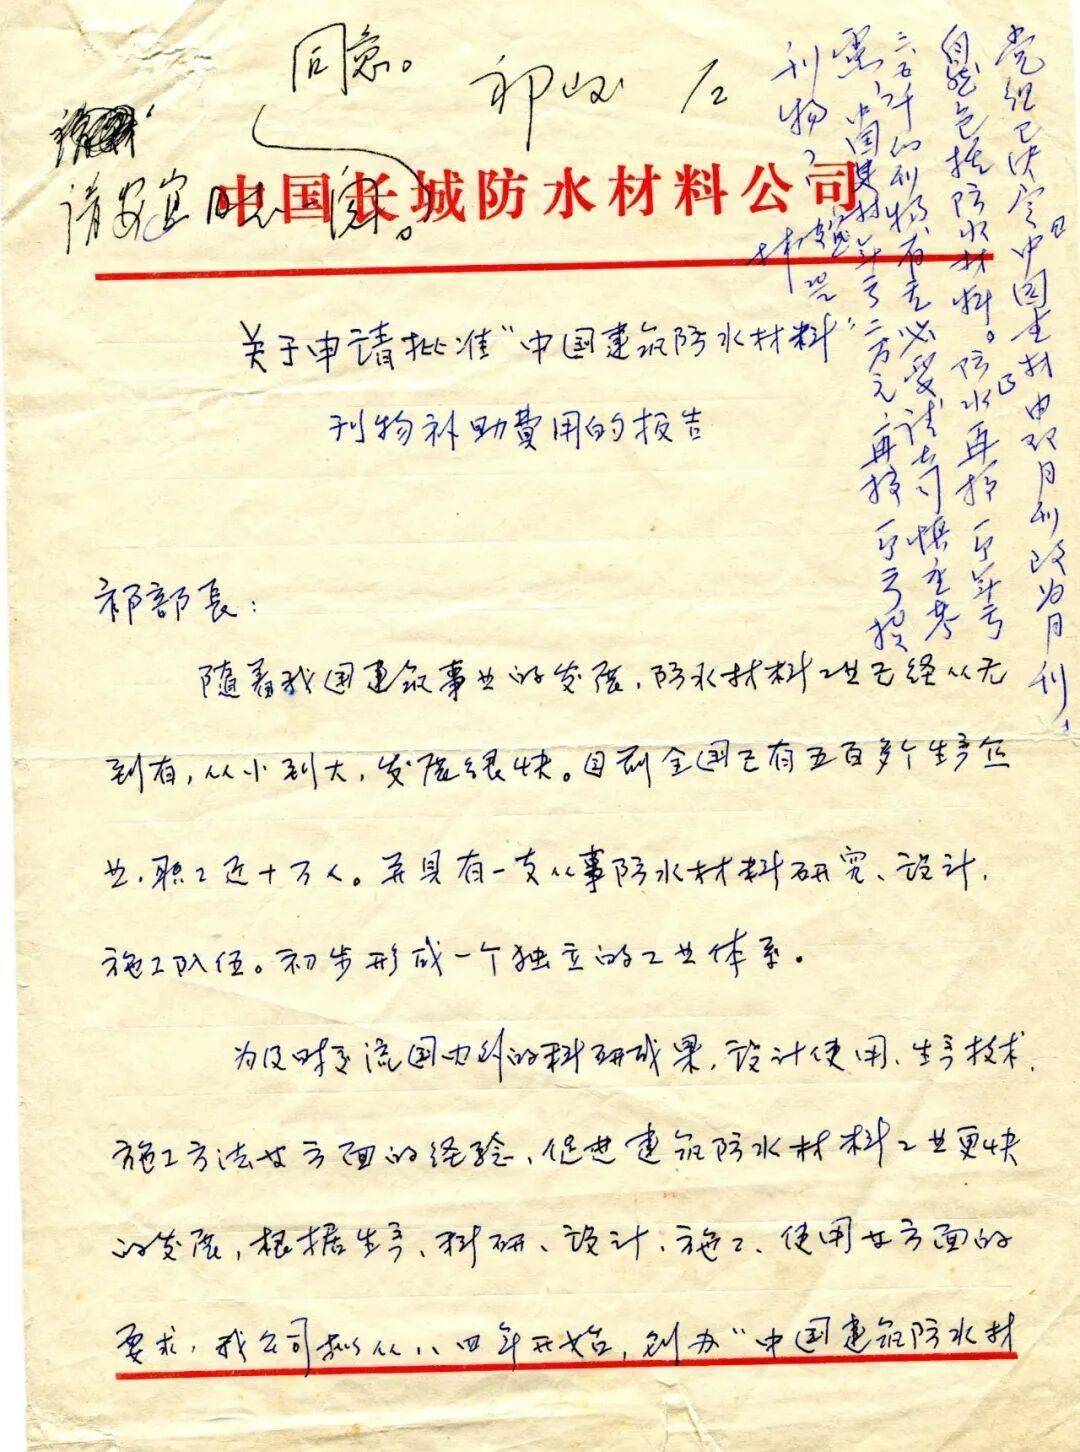 同意。
祁峻
请安宜同志阅。
中国长城防水材料公司
党组已决定中国建材由双月刊改为月刊，
自然包括防水材料。防水再拆一部年亏
三、五千的刊物有无必要请公司慎重考
中国建材年亏二万元，再接一个亏损
刊物？
关于申请批准“中国建筑防水材料”
刊物补助费用的报告
祁部長：
随着我国建筑事业的发展，防水材料工业已经从无
到有，从小到大，发展很快。目前全国已有五百多个生产企
业，职工近十万人。并具有一支从事防水材料研究、设计、
施工队伍。初步形成一个独立的工业体系。
为及时交流国内外的科研成果，设计使用、生产技术、
施工方法等方面的经验，促进建筑防水材料工业更快
的发展，根据生产、科研、设计、施工、使用等方面的
要求，我公司拟从八四年开始，创办“中国建筑防水材